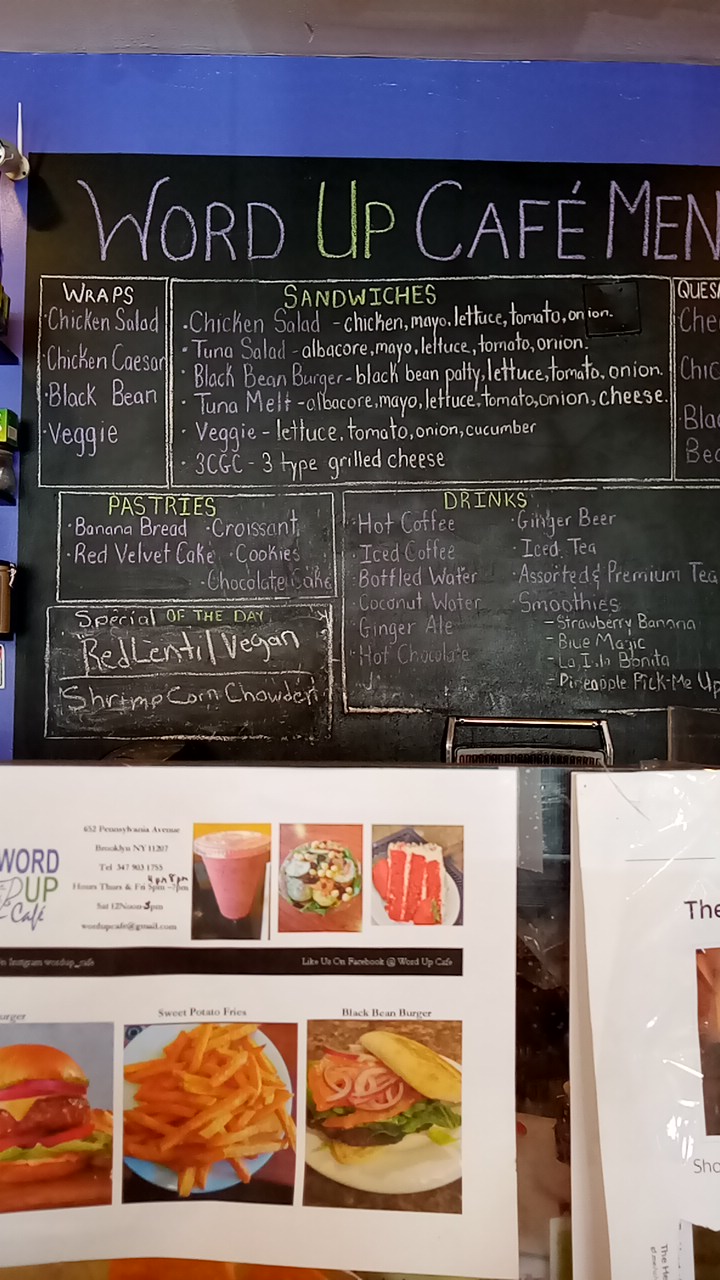 WORD UP CAFÉ MEN
WRAPS
·Chicken Salad
·Chicken Caesar
·Black Bean
·Veggie
SANDWICHES
·Chicken Salad - chicken, mayo, lettuce, tomato, onion.
·Tuna Salad - albacore, mayo, lettuce, tomato, onion.
·Black Bean Burger - black bean patty, lettuce, tomato, onion.
·Tuna Melt - albacore, mayo, lettuce, tomato, onion, cheese.
·Veggie - lettuce, tomato, onion, cucumber
·3CGC - 3 type grilled cheese
QUESA
·Che
·Chic
·Blac
Bea
PASTRIES
·Banana Bread ·Croissant
·Red Velvet Cake ·Cookies
·Chocolate Cake
Special OF THE DAY
Red Lentil Vegan
Shrimp Corn Chowder
DRINKS
·Hot Coffee
·Iced Coffee
·Bottled Water
·Coconut Water
·Ginger Ale
·Hot Chocolate
·Ginger Beer
·Iced Tea
·Assorted & Premium Tea
Smoothies
-Strawberry Banana
-Blue Majic
-La Isla Bonita
-Pineapple Pick-Me Up
WORD
UP
Café
652 Pennsylvania Avenue
Brooklyn NY 11207
Tel 347 903 1755
4pm 8pm
Hours Thurs & Fri 5pm -7pm
Sat 12Noon-5pm
wordupcafe@gmail.com
On Instgram wordup_cafe
Like Us On Facebook @ Word Up Cafe
urger
Sweet Potato Fries
Black Bean Burger
The
Sho
The He